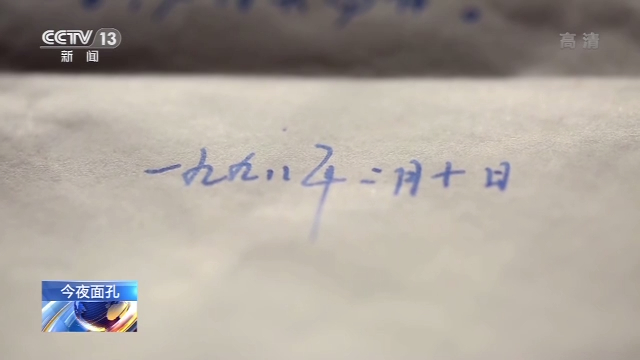 CCTV 13
新闻
高清
一九九八年二月十日
今夜面孔